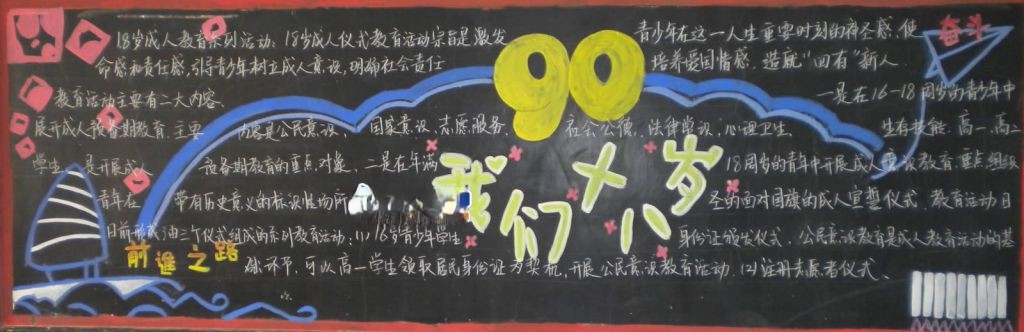 18岁成人教育系列活动：18岁成人仪式教育活动宗旨是激发
青少年在这一人生重要时刻的神圣感，使
奋斗
命感和责任感，引导青少年树立成人意识，明确社会责任
培养爱国情感，造就“四有”新人
90
教育活动主要有二大内容．
一是在16-18周岁的青少年中
展开成人预备期教育．主要 内容是公民意识、国家意识、志愿服务、社会公德、法律常识、心理卫生、 生存技能．高一、高二
学生 是开展成人 预备期教育的重点对象．二是在年满 18周岁的青年中开展成人意识教育．重点组织
我们十八岁
青年在 带有历史意义的标识性场所 圣的面对国旗的成人宣誓仪式．教育活动目
目前形成 由三个仪式组成的系列教育活动：(1)16岁青少年学生 身份证颁发仪式．公民意识教育是成人教育活动的基
前进之路
础环节，可以高一学生领取居民身份证为契机，开展公民意识教育活动．(2)注册志愿者仪式、